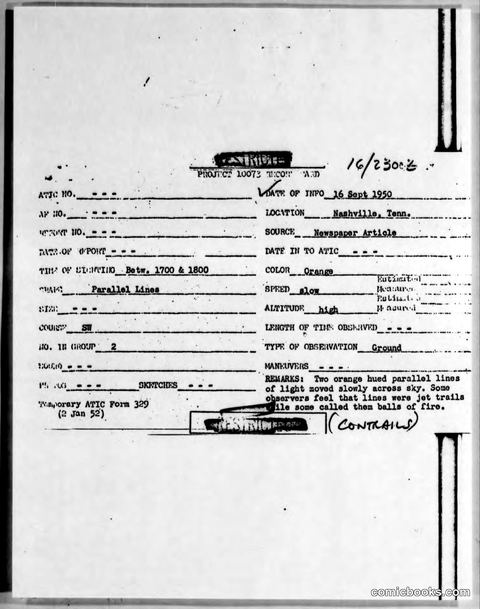 RESTRICTED 16/2300Z
PROJECT 10073 RECORD CARD
ATIC NO. - - -
DATE OF INFO 16 Sept 1950
AF NO. - - -
LOCATION Nashville, Tenn.
REPORT NO. - - -
SOURCE Newspaper Article
DATE OF REPORT - - -
DATE IN TO ATIC - - -
TIME OF SIGHTING Betw. 1700 & 1800
COLOR Orange
SHAPE Parallel Lines
SPEED slow Estimated Measured
SIZE - - -
ALTITUDE high Estimated Measured
COURSE SW
LENGTH OF TIME OBSERVED - - -
NO. IN GROUP 2
TYPE OF OBSERVATION Ground
SOUND - - -
MANEUVERS - - -
PHOTOS - - - SKETCHES - - -
REMARKS: Two orange hued parallel lines
of light moved slowly across sky. Some
observers feel that lines were jet trails
while some called them balls of fire.
Temporary ATIC Form 329
(2 Jan 52)
RESTRICTED (CONTRAILS)
comicbooks.com